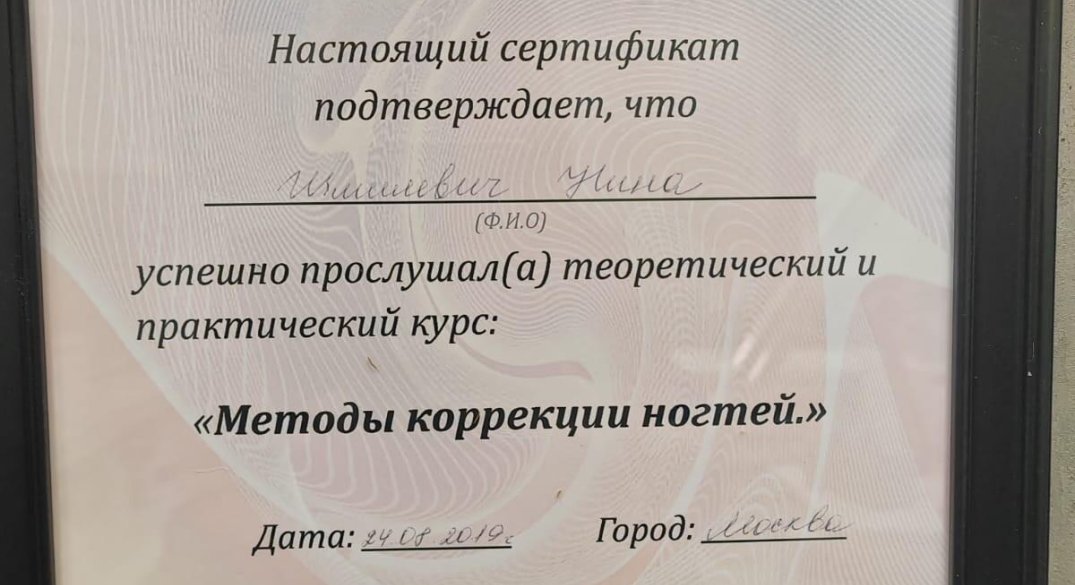 Настоящий сертификат
подтверждает, что
Нина
(Ф.И.О)
успешно прослушал(а) теоретический и
практический курс:
«Методы коррекции ногтей.»
Дата: 24.08.2019г Город: Москва